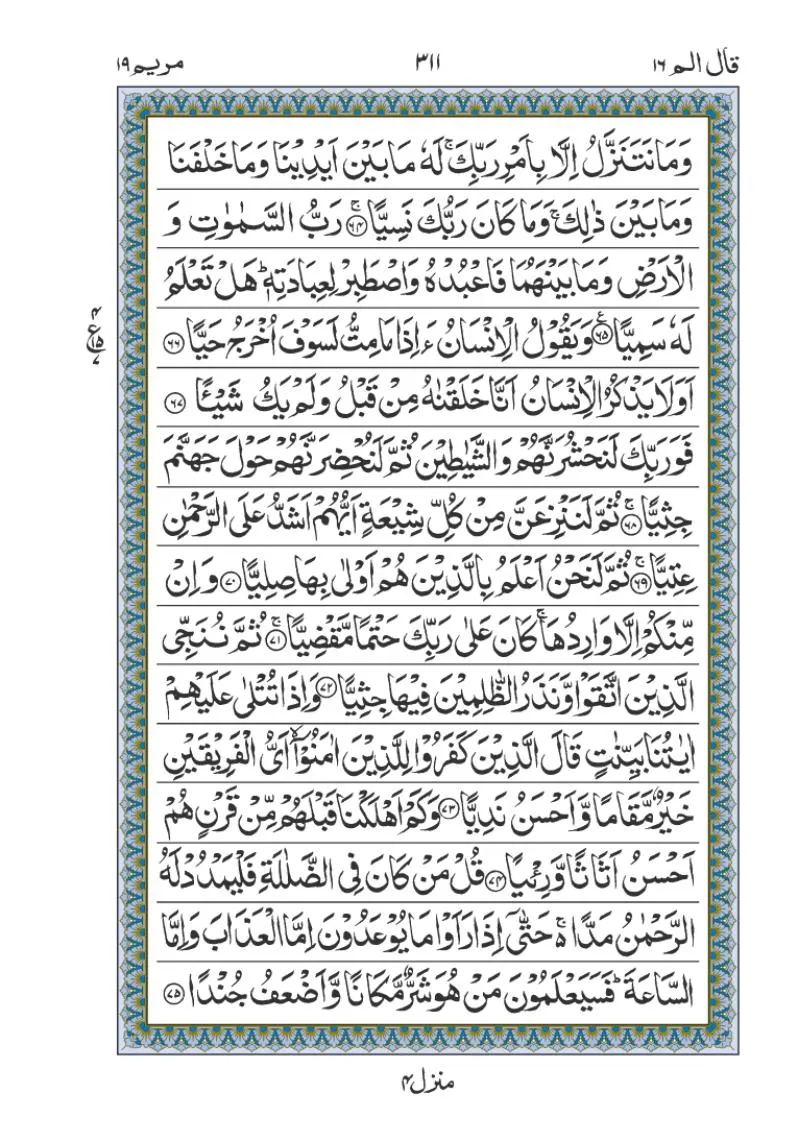 قال الـم ١٦ ٣١١ مريم ١٩
وَمَا نَتَنَزَّلُ اِلَّا بِاَمْرِ رَبِّكَ ۚ لَهٗ مَا بَيْنَ اَيْدِيْنَا وَمَا خَلْفَنَا
وَمَا بَيْنَ ذٰلِكَ ۚ وَمَا كَانَ رَبُّكَ نَسِيًّا ۚ ﴿٦٤﴾ رَبُّ السَّمٰوٰتِ وَ
الْاَرْضِ وَمَا بَيْنَهُمَا فَاعْبُدْهُ وَاصْطَبِرْ لِعِبَادَتِهٖ ؕ هَلْ تَعْلَمُ
لَهٗ سَمِيًّا ﴿٦٥﴾ وَيَقُوْلُ الْاِنْسَانُ ءَاِذَا مَا مِتُّ لَسَوْفَ اُخْرَجُ حَيًّا ﴿٦٦﴾
اَوَلَا يَذْكُرُ الْاِنْسَانُ اَنَّا خَلَقْنٰهُ مِنْ قَبْلُ وَلَمْ يَكُ شَيْـًٔا ﴿٦٧﴾
فَوَرَبِّكَ لَنَحْشُرَنَّهُمْ وَالشَّيٰطِيْنَ ثُمَّ لَنُحْضِرَنَّهُمْ حَوْلَ جَهَنَّمَ
جِثِيًّا ۚ ﴿٦٨﴾ ثُمَّ لَنَنْزِعَنَّ مِنْ كُلِّ شِيْعَةٍ اَيُّهُمْ اَشَدُّ عَلَى الرَّحْمٰنِ
عِتِيًّا ۚ ﴿٦٩﴾ ثُمَّ لَنَحْنُ اَعْلَمُ بِالَّذِيْنَ هُمْ اَوْلٰى بِهَا صِلِيًّا ﴿٧٠﴾ وَاِنْ
مِّنْكُمْ اِلَّا وَارِدُهَا ۚ كَانَ عَلٰى رَبِّكَ حَتْمًا مَّقْضِيًّا ۚ ﴿٧١﴾ ثُمَّ نُنَجِّى
الَّذِيْنَ اتَّقَوْا وَّنَذَرُ الظّٰلِمِيْنَ فِيْهَا جِثِيًّا ﴿٧٢﴾ وَاِذَا تُتْلٰى عَلَيْهِمْ
اٰيٰتُنَا بَيِّنٰتٍ قَالَ الَّذِيْنَ كَفَرُوْا لِلَّذِيْنَ اٰمَنُوْۤا ۙ اَىُّ الْفَرِيْقَيْنِ
خَيْرٌ مَّقَامًا وَّاَحْسَنُ نَدِيًّا ﴿٧٣﴾ وَكَمْ اَهْلَكْنَا قَبْلَهُمْ مِّنْ قَرْنٍ هُمْ
اَحْسَنُ اَثَاثًا وَّرِءْيًا ﴿٧٤﴾ قُلْ مَنْ كَانَ فِى الضَّلٰلَةِ فَلْيَمْدُدْ لَهُ
الرَّحْمٰنُ مَدًّا ۚ۬ حَتّٰۤى اِذَا رَاَوْا مَا يُوْعَدُوْنَ اِمَّا الْعَذَابَ وَاِمَّا
السَّاعَةَ ؕ فَسَيَعْلَمُوْنَ مَنْ هُوَ شَرٌّ مَّكَانًا وَّاَضْعَفُ جُنْدًا ﴿٧٥﴾
منزل ٤